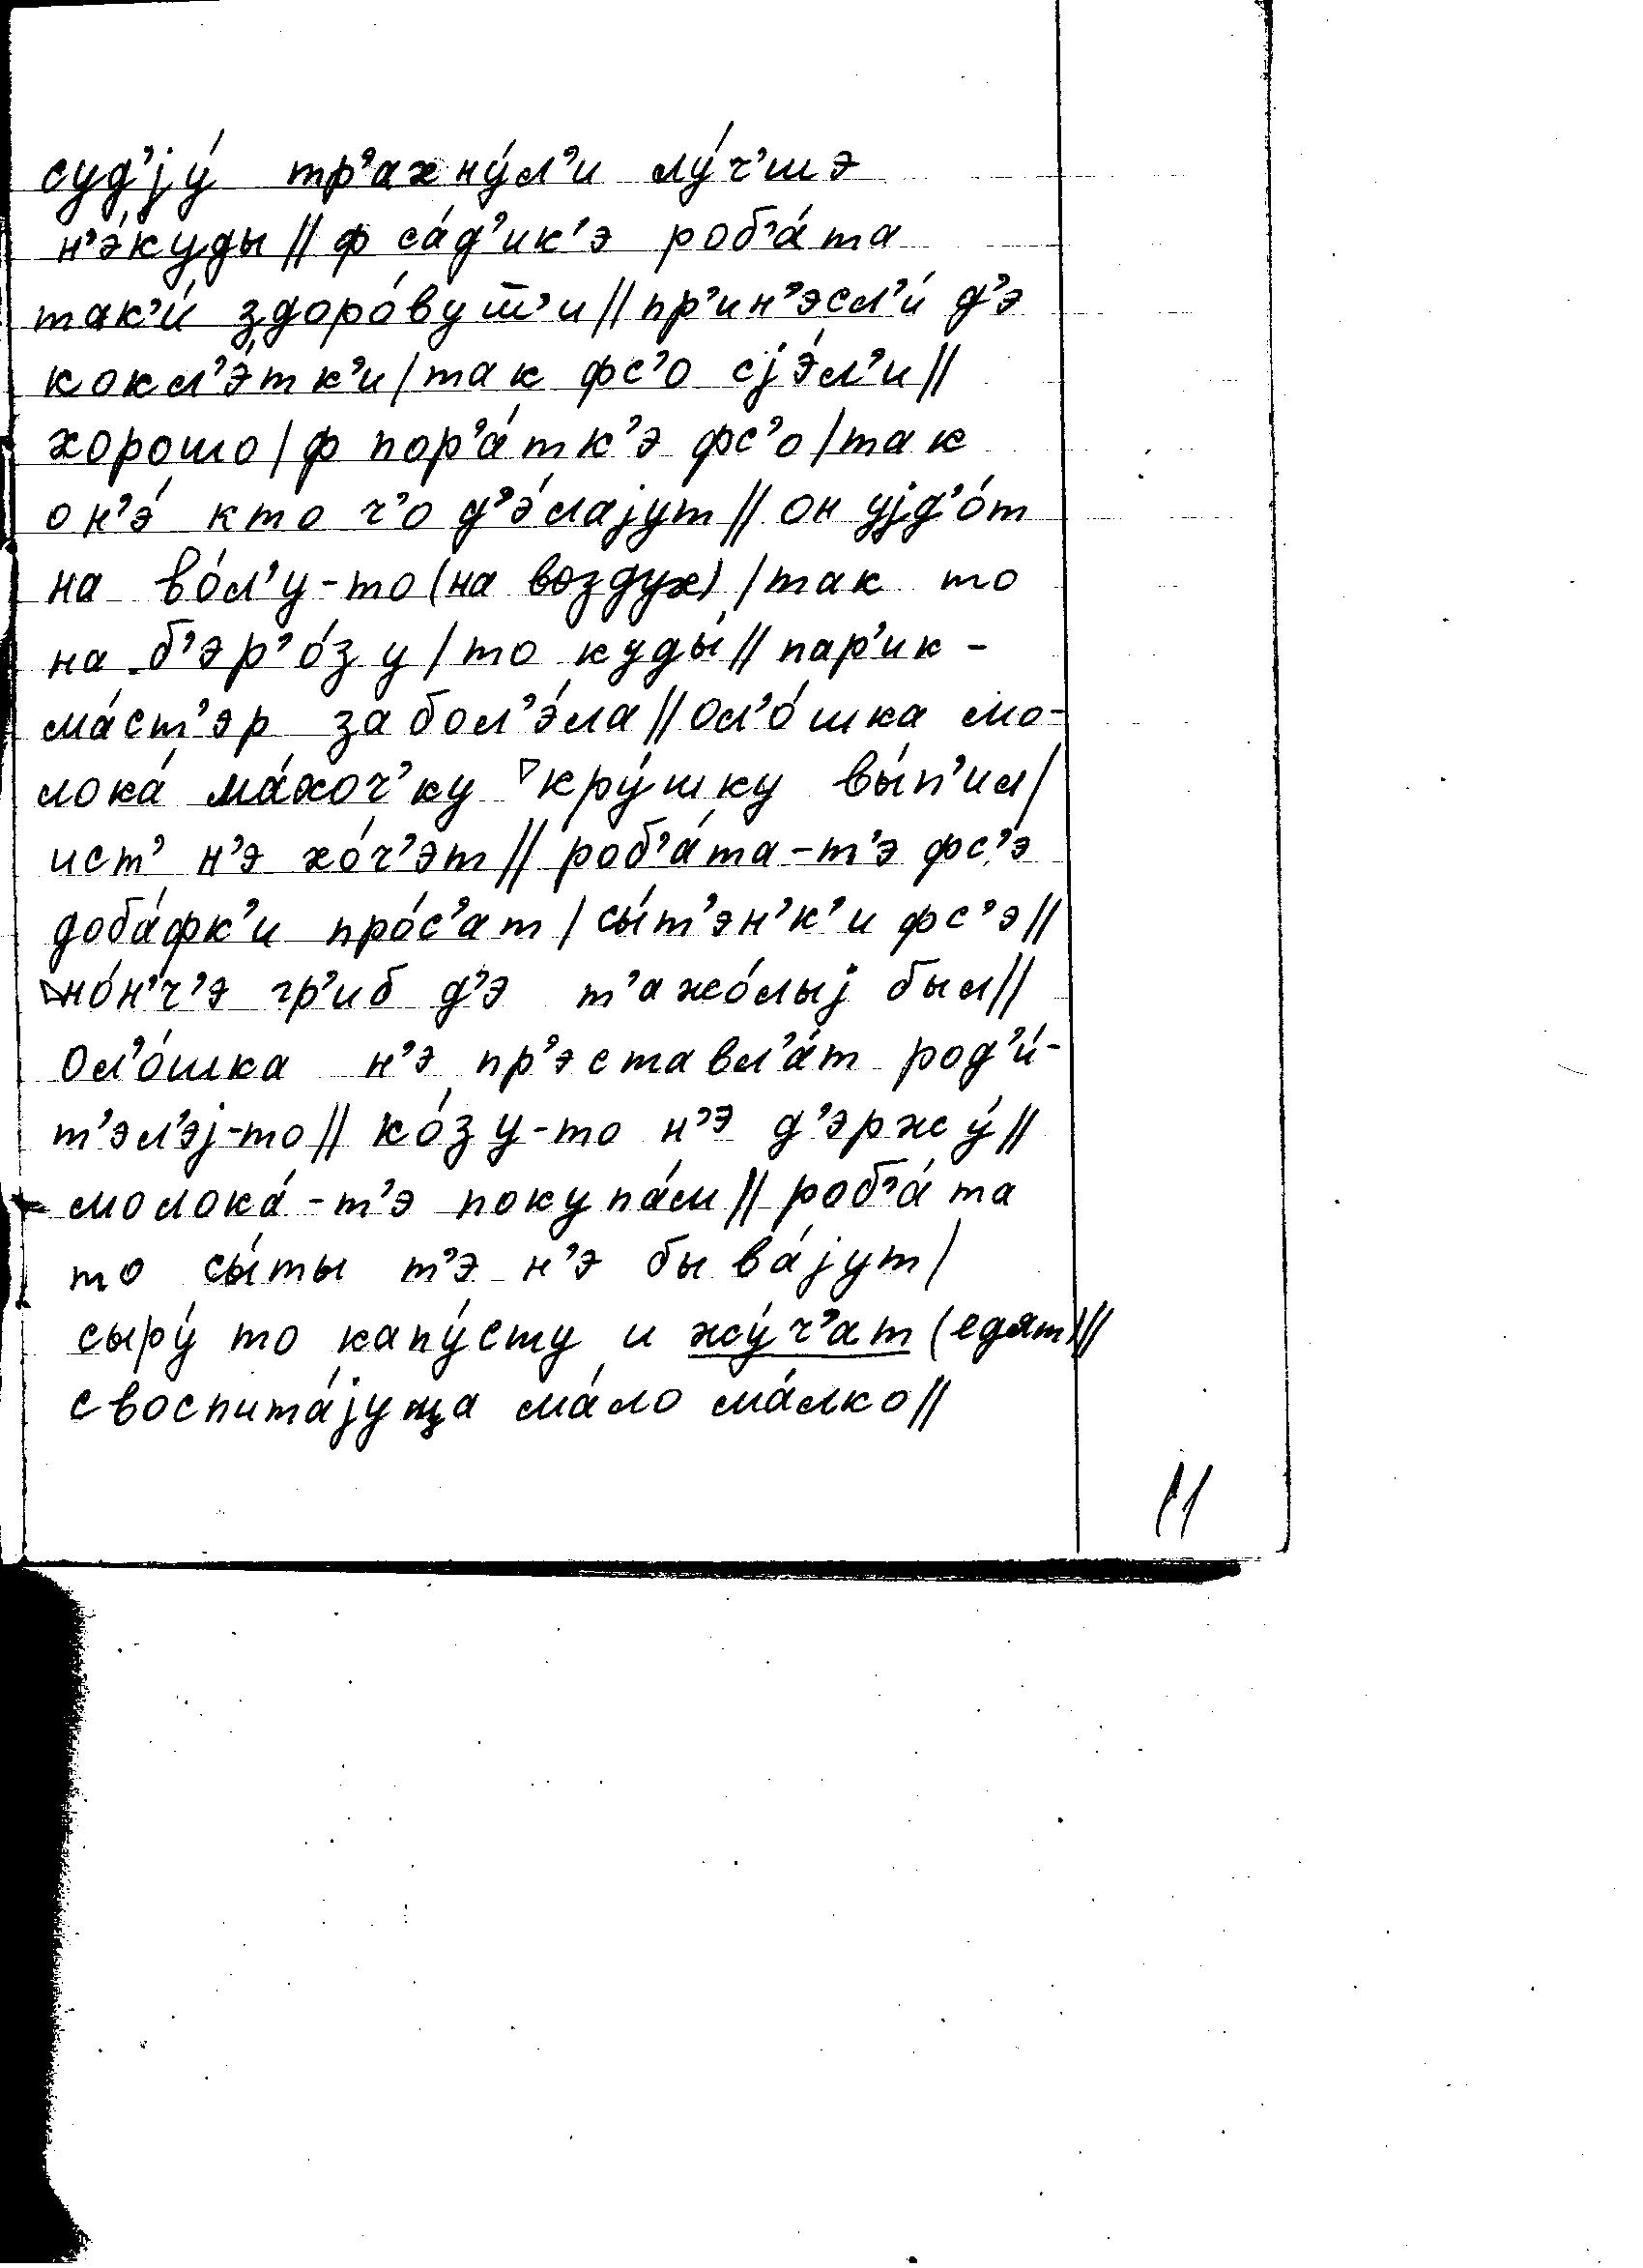 суд’jу́ тр’ахну́л’и лу́ч’шэ
н’э́куды // ф са́д’ик’э роб’а́та
так’и́ здоро́вуш̅’и // пр’ин’эсл’и́ д’э
кокл’э́тк’и / так фс’о сjэ́л’и //
хорошо / ф пор’а́тк’э фс’о / так
он’э́ кто ч’о д’э́лаjут // он уjд’о́т
на во́л’у-то (на воздух) / так то
на б’эр’о́зу / то куды́ // пар’ик-
ма́ст’эр забол’э́ла // ол’о́шка мо-
лока́ ма́хоч’ку ▽кру́шку вы́п’ил /
ист’ н’э хо́ч’эт // роб’а́та-т’э фс’э́
доба́фк’и про́с’ат / сы́т’эн’к’и фс’э //
▽но́н’ч’э гр’иб д’э т’ажо́лыj был //
Ол’о́шка н’э пр’эставл’а́т род’и́-
т’эл’эj-то // ко́зу-то н’э д’эржу́ //
молока́-т’э покупа́м // роб’а́та
то сы́ты т’э н’э быва́jут /
сыру́ то капу́сту и жу́ч’ат (едят) //
своспита́jуцца ма́ло ма́лко //
11